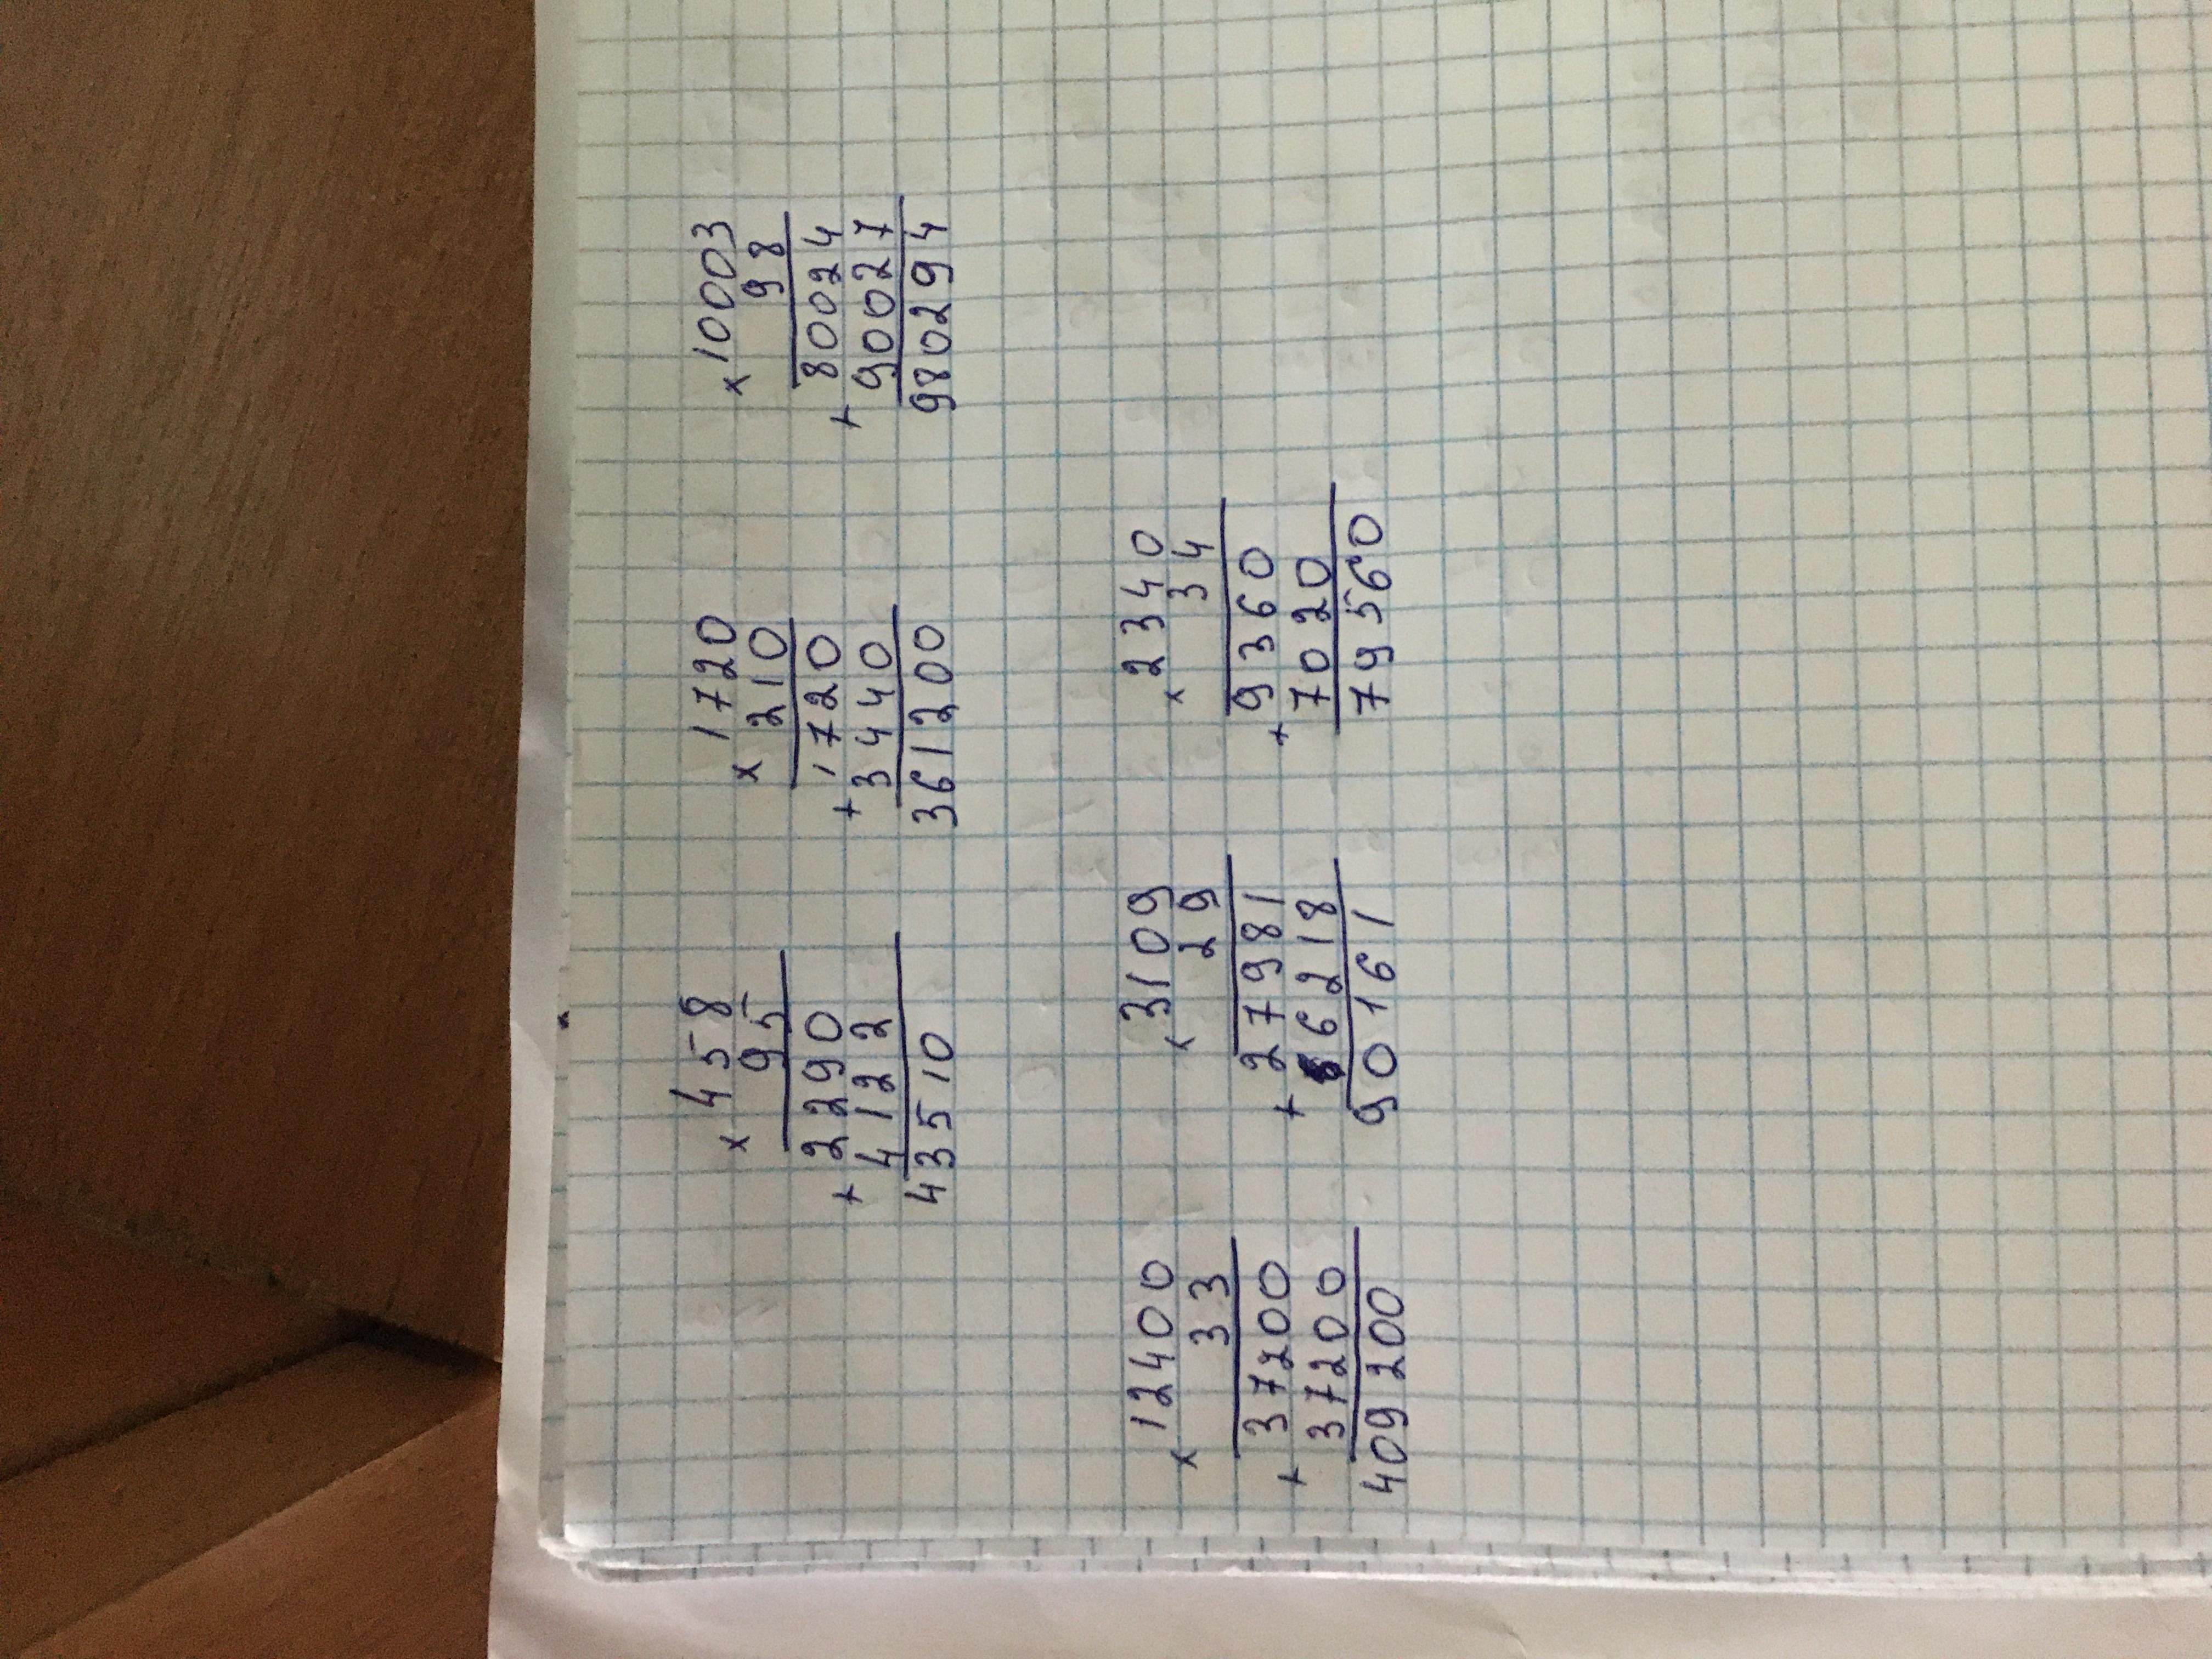 × 458
95
+ 2290
4122
43510
× 1720
210
+ 1720
3440
361200
× 10003
98
+ 80024
90027
980294
× 12400
33
+ 37200
37200
409200
× 3109
29
+ 27981
6218
90161
× 2340
34
+ 9360
7020
79560